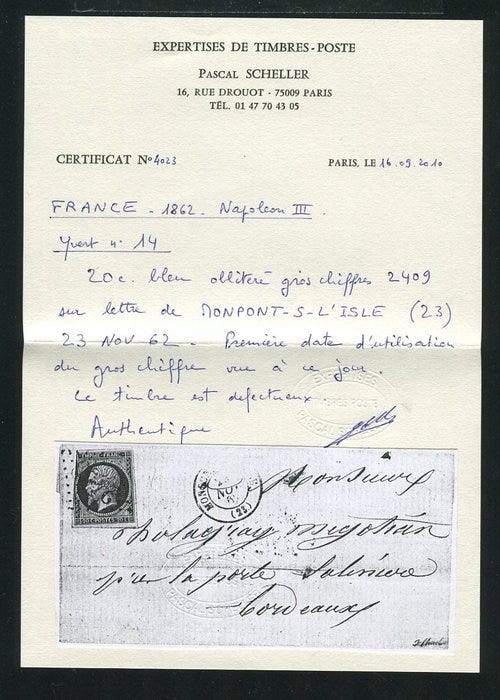 EXPERTISES DE TIMBRES-POSTE
PASCAL SCHELLER
16, RUE DROUOT - 75009 PARIS
TÉL. 01 47 70 43 05
CERTIFICAT No 4023 PARIS, LE 16.09.2010
FRANCE - 1862 - Napoléon III.
Yvert n. 14
20c. bleu oblitéré gros chiffres 2409
sur lettre de MONPONT-S-L'ISLE (23)
23 NOV 62 - Première date d'utilisation
du gros chiffre vue à ce jour.
Le timbre est defectueux
Authentique
EXPERTISES
PASCAL
NOV
MON
(23)
Monsieur
négotian
près la porte Salinière
Bordeaux